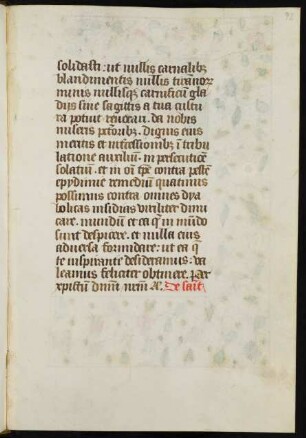 solidasti: ut nullis carnalibꝫ
blandimentis nullis tirannor
minis nullisqꝫ carnificū gla
dijs siue sagittis a tua cultu
ra potuit reuocari. da nobis
miseris pctōribꝫ. dignis eius
meritis et intercessionibꝫ in tribu
latione auxiliū. in persecutiōe
solatiū. et in oī tp̄e contra pestē
epydimie remediū quatinus
possimus contra omnes dya
bolicas insidias viriliter dimi
care. mundū et ea q̄ in mūdo
sunt despicere. et nulla eius
aduersa formidare: ut ea q̄
te inspirante desideramus: va
leamus feliciter obtinere. Per
xpistum dnm̄ nrm̄ Aꝭ. De sanct